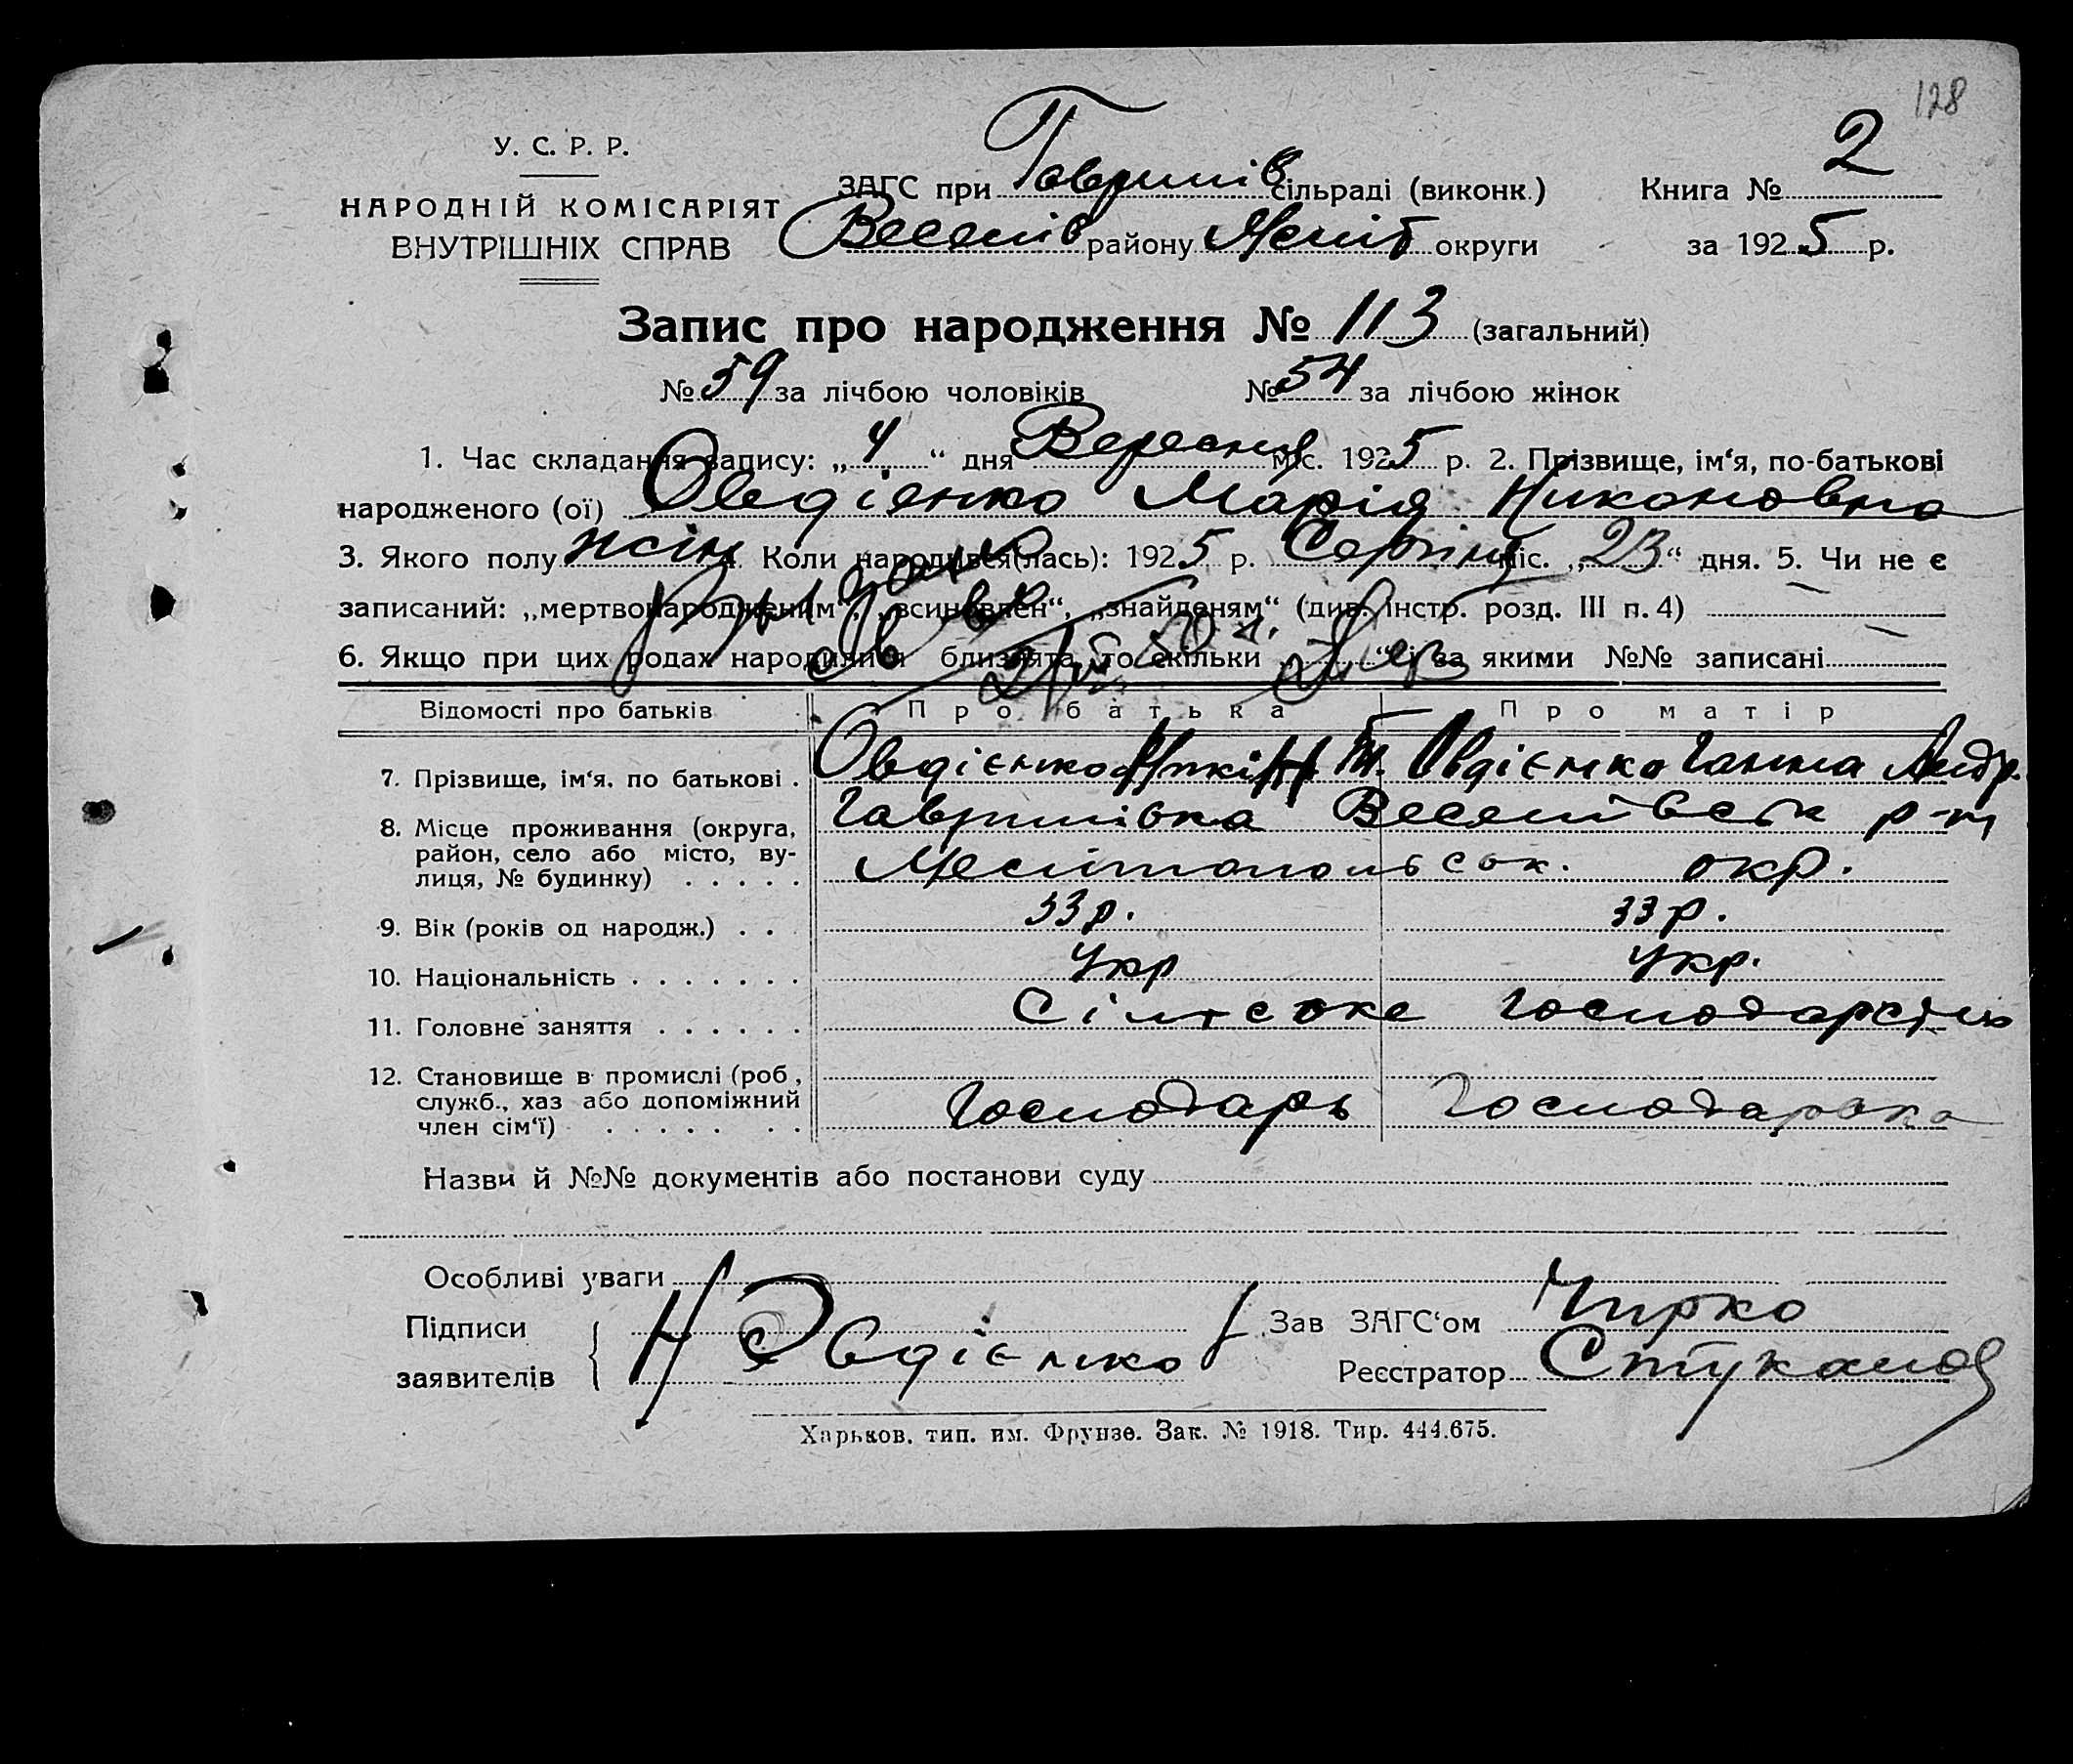 128
У. С. Р. Р.
НАРОДНІЙ КОМІСАРІЯТ
ВНУТРІШНІХ СПРАВ
ЗАГС при Гаврилів сільраді (виконк.) Книга № 2
Веселів району Меліт округи за 1925 р.
Запис про народження № 113 (загальний)
№ 59 за лічбою чоловіків № 54 за лічбою жінок
1. Час складання запису: „4“ дня Вересня міс. 1925 р. 2. Прізвище, ім‘я, по-батькові
народженого (ої) Овдієнко Марія Никоновна
3. Якого полу жін Коли народився(лась): 1925 р. Серпня міс. „23“ дня. 5. Чи не є
записаний: „мертвонародженим“, „всиновлен“, „знайденям“ (див. Інстр. розд. III п. 4)
6. Якщо при цих родах народилися близнята, то скільки „ “ і за якими №№ записані
Відомості про батьків Про батька Про матір
7. Прізвище, ім‘я. по батькові . Овдієнко Т. Овдієнко Ганна Андр.
8. Місце проживання (округа, район, село або місто, ву-
лиця, № будинку) . . . . . Гаврилівка Веселівськ р-н
Мелітопольськ. окр.
9. Вік (років од народж.) . . . 33 р. 33 р.
10. Національність . . . . . . . Укр Укр.
11. Головне заняття . . . . . . Сільське
12. Становище в промислі (роб.,
служб., хаз або допоміжний
член сім‘ї) . . . . . . . Господарь Господарка
Назви й №№ документів або постанови суду
Особливі уваги
Підписи
заявителів Н Овдієнко
Зав ЗАГС‘ом Чирко
Реєстратор
Харьков. тип. им. Фрунзе. Зак. № 1918. Тир. 444.675.